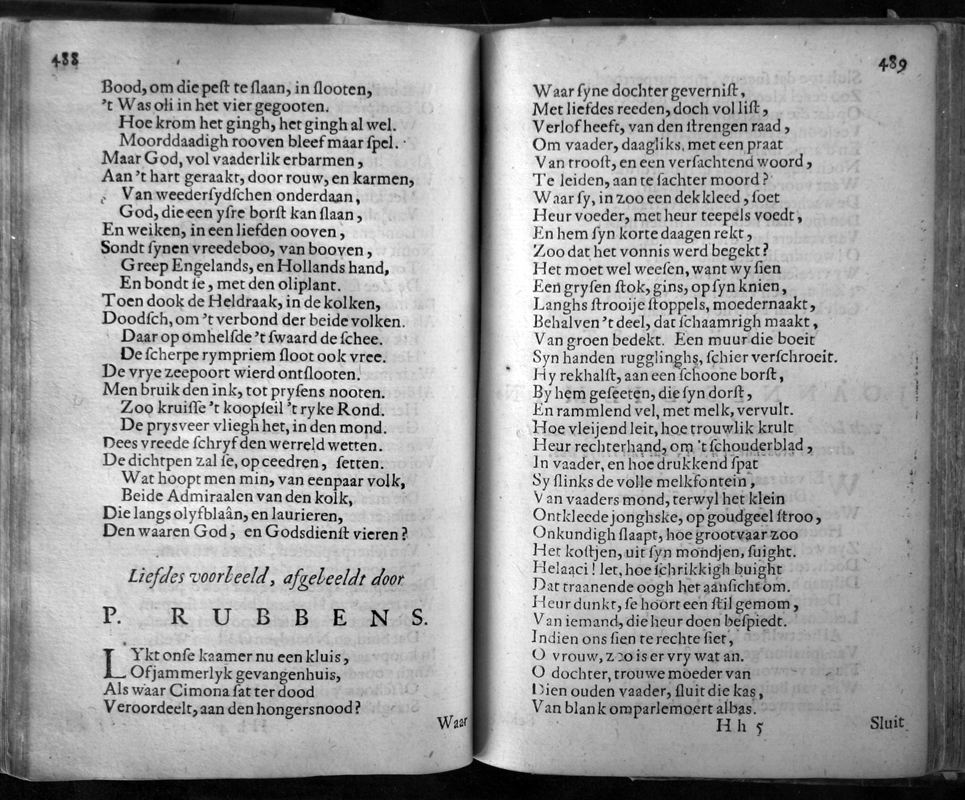 488
Bood, om die peſt te ſlaan, in ſlooten,
't Was oli in het vier gegooten.
Hoe krom het gingh, het gingh al wel.
Moorddaadigh rooven bleef maar ſpel.
Maar God, vol vaaderlik erbarmen,
Aan 't hart geraakt, door rouw, en karmen,
Van weederſydſchen onderdaan,
God, die een yſre borſt kan ſlaan,
En weiken, in een liefden ooven,
Sondt ſynen vreedeboo, van booven,
Greep Engelands, en Hollands hand,
En bondt ſe, met den oliplant.
Toen dook de Heldraak, in de kolken,
Doodſch, om 't verbond der beide volken.
Daar op omhelſde 't ſwaard de ſchee.
De ſcherpe rympriem ſloot ook vree.
De vrye zeepoort wierd ontſlooten.
Men bruik den ink, tot pryſens nooten.
Zoo kruiſſe 't koopſeil 't ryke Rond.
De prysveer vliegh het, in den mond.
Dees vreede ſchryf den werreld wetten.
De dichtpen zal ſe, op ceedren, ſetten.
Wat hoopt men min, van eenpaar volk,
Beide Admiraalen van den kolk,
Die langs olyfblaân, en laurieren,
Den waaren God, en Godsdienſt vieren?
Liefdes voorbeeld, afgebeeldt door
P. RUBBENS.
LYkt onſe kaamer nu een kluis,
Of jammerlyk gevangenhuis,
Als waar Cimona ſat ter dood
Veroordeelt, aan den hongersnood?
Waar
489
Waar ſyne dochter geverniſt,
Met liefdes reeden, doch vol liſt,
Verlof heeft, van den ſtrengen raad,
Om vaader, daagliks, met een praat
Van trooſt, en een verſachtend woord,
Te leiden, aan te ſachter moord?
Waar ſy, in zoo een dekkleed, ſoet
Heur voeder, met heur teepels voedt,
En hem ſyn korte daagen rekt,
Zoo dat het vonnis werd begekt?
Het moet wel weeſen, want wy ſien
Een gryſen ſtok, gins, op ſyn knien,
Langhs ſtrooije ſtoppels, moedernaakt,
Behalven 't deel, dat ſchaamrigh maakt,
Van groen bedekt. Een muur die boeit
Syn handen rugglinghs, ſchier verſchroeit.
Hy rekhalſt, aan een ſchoone borſt,
By hem geſeeten, die ſyn dorſt,
En rammlend vel, met melk, vervult.
Hoe vleijend leit, hoe trouwlik krult
Heur rechterhand, om 't ſchouderblad,
In vaader, en hoe drukkend ſpat
Sy ſlinks de volle melkfontein,
Van vaaders mond, terwyl het klein
Ontkleede jonghske, op goudgeel ſtroo,
Onkundigh ſlaapt, hoe grootvaar zoo
Het koſtjen, uit ſyn mondjen, ſuight.
Helaaci! let, hoe ſchrikkigh buight
Dat traanende oogh het aanſicht om.
Heur dunkt, ſe hoort een ſtil gemom,
Van iemand, die heur doen beſpiedt.
Indien ons ſien te rechte ſiet,
O vrouw, zoo is er vry wat an.
O dochter, trouwe moeder van
Dien ouden vaader, ſluit die kas,
Van blank omparlemoert albas.
Hh 5
Sluit